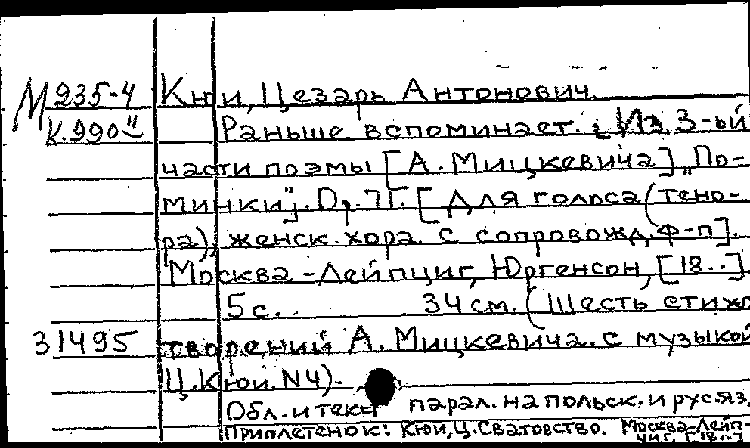 М 235-4 Кюи, Цезарь Антонович.
К.990" Раньше вспоминает. [Из 3-ьей
части поэмы [А. Мицкевича] „По-
минки"]. Ор. 71. [Для голоса (тено-
ра), женск. хора с сопровожд. ф-п].
Москва-Лейпциг, Юргенсон, [18..].
5 с. 34 см. (Шесть стихо
31495 творений А. Мицкевича с музыкой
Ц. Кюи. N4).
Обл. и текст парал. на польск. и рус яз.
Приплетен ок: Кюи, Ц. Сватовство. Москва-Лейп
циг, [18..]